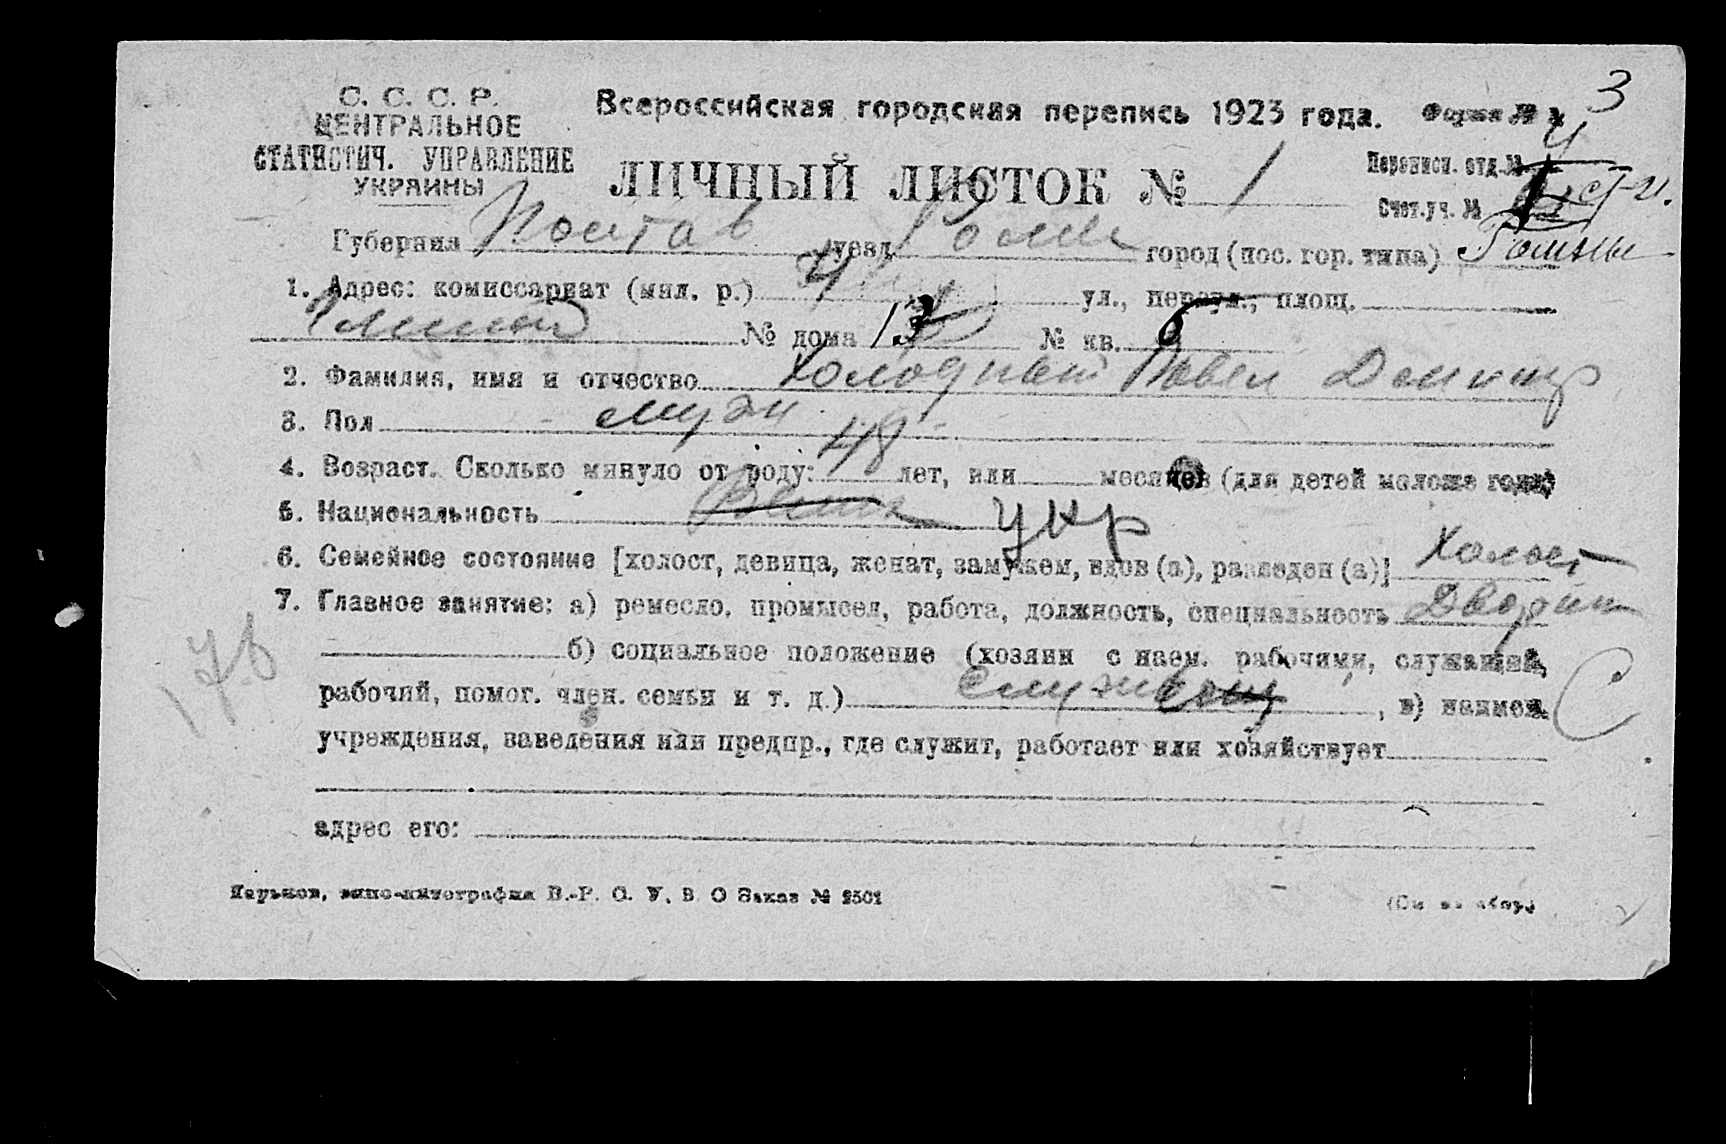 С. С. С. Р.
ЦЕНТРАЛЬНОЕ
СТАТИСТИЧ. УПРАВЛЕНИЕ
УКРАИНЫ
Всероссийская городская перепись 1923 года. Форма №
3
ЛИЧНЫЙ ЛИСТОК № 1
Переписн. отд. № 4
Счет. уч. №
Губерния Полтав уезд Ромен город (пос. гор. типа) Ромны
1. Адрес: комиссариат (мил. р.) 4 ул., переул., площ.
№ дома 13 № кв. 6
2. Фамилия, имя и отчество Холодный Павел Дмитр
3. Пол муж
4. Возраст. Сколько минуло от роду: 48 лет, или месяцев (для детей моложе года)
5. Национальность укр
6. Семейное состояние [холост, девица, женат, замужем, вдов (а), разведен (а)] Холост
7. Главное занятие: а) ремесло, промысел, работа, должность, специальность
б) социальное положение (хозяин с наем. рабочими, служащий,
рабочий, помог. член. семьи и т. д.) , в) наимен.
учреждения, заведения или предпр., где служит, работает или хозяйствует
адрес его:
176
С
Харьков, типо-литография В.-Р. О. У. В. О Заказ № 2501
(См на обор.)